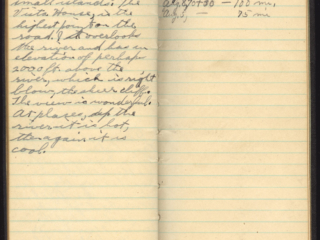 small islands. The
Vista House, is the
highest point on the
road. It overlooks
the river and has an
elevation of perhaps
2000 ft. above the
river, which is right
below, the sheer cliff.
The view is wonderful.
At places, up the
river it is hot,
then again it is
cool.
— 100 mi.
— 75 mi